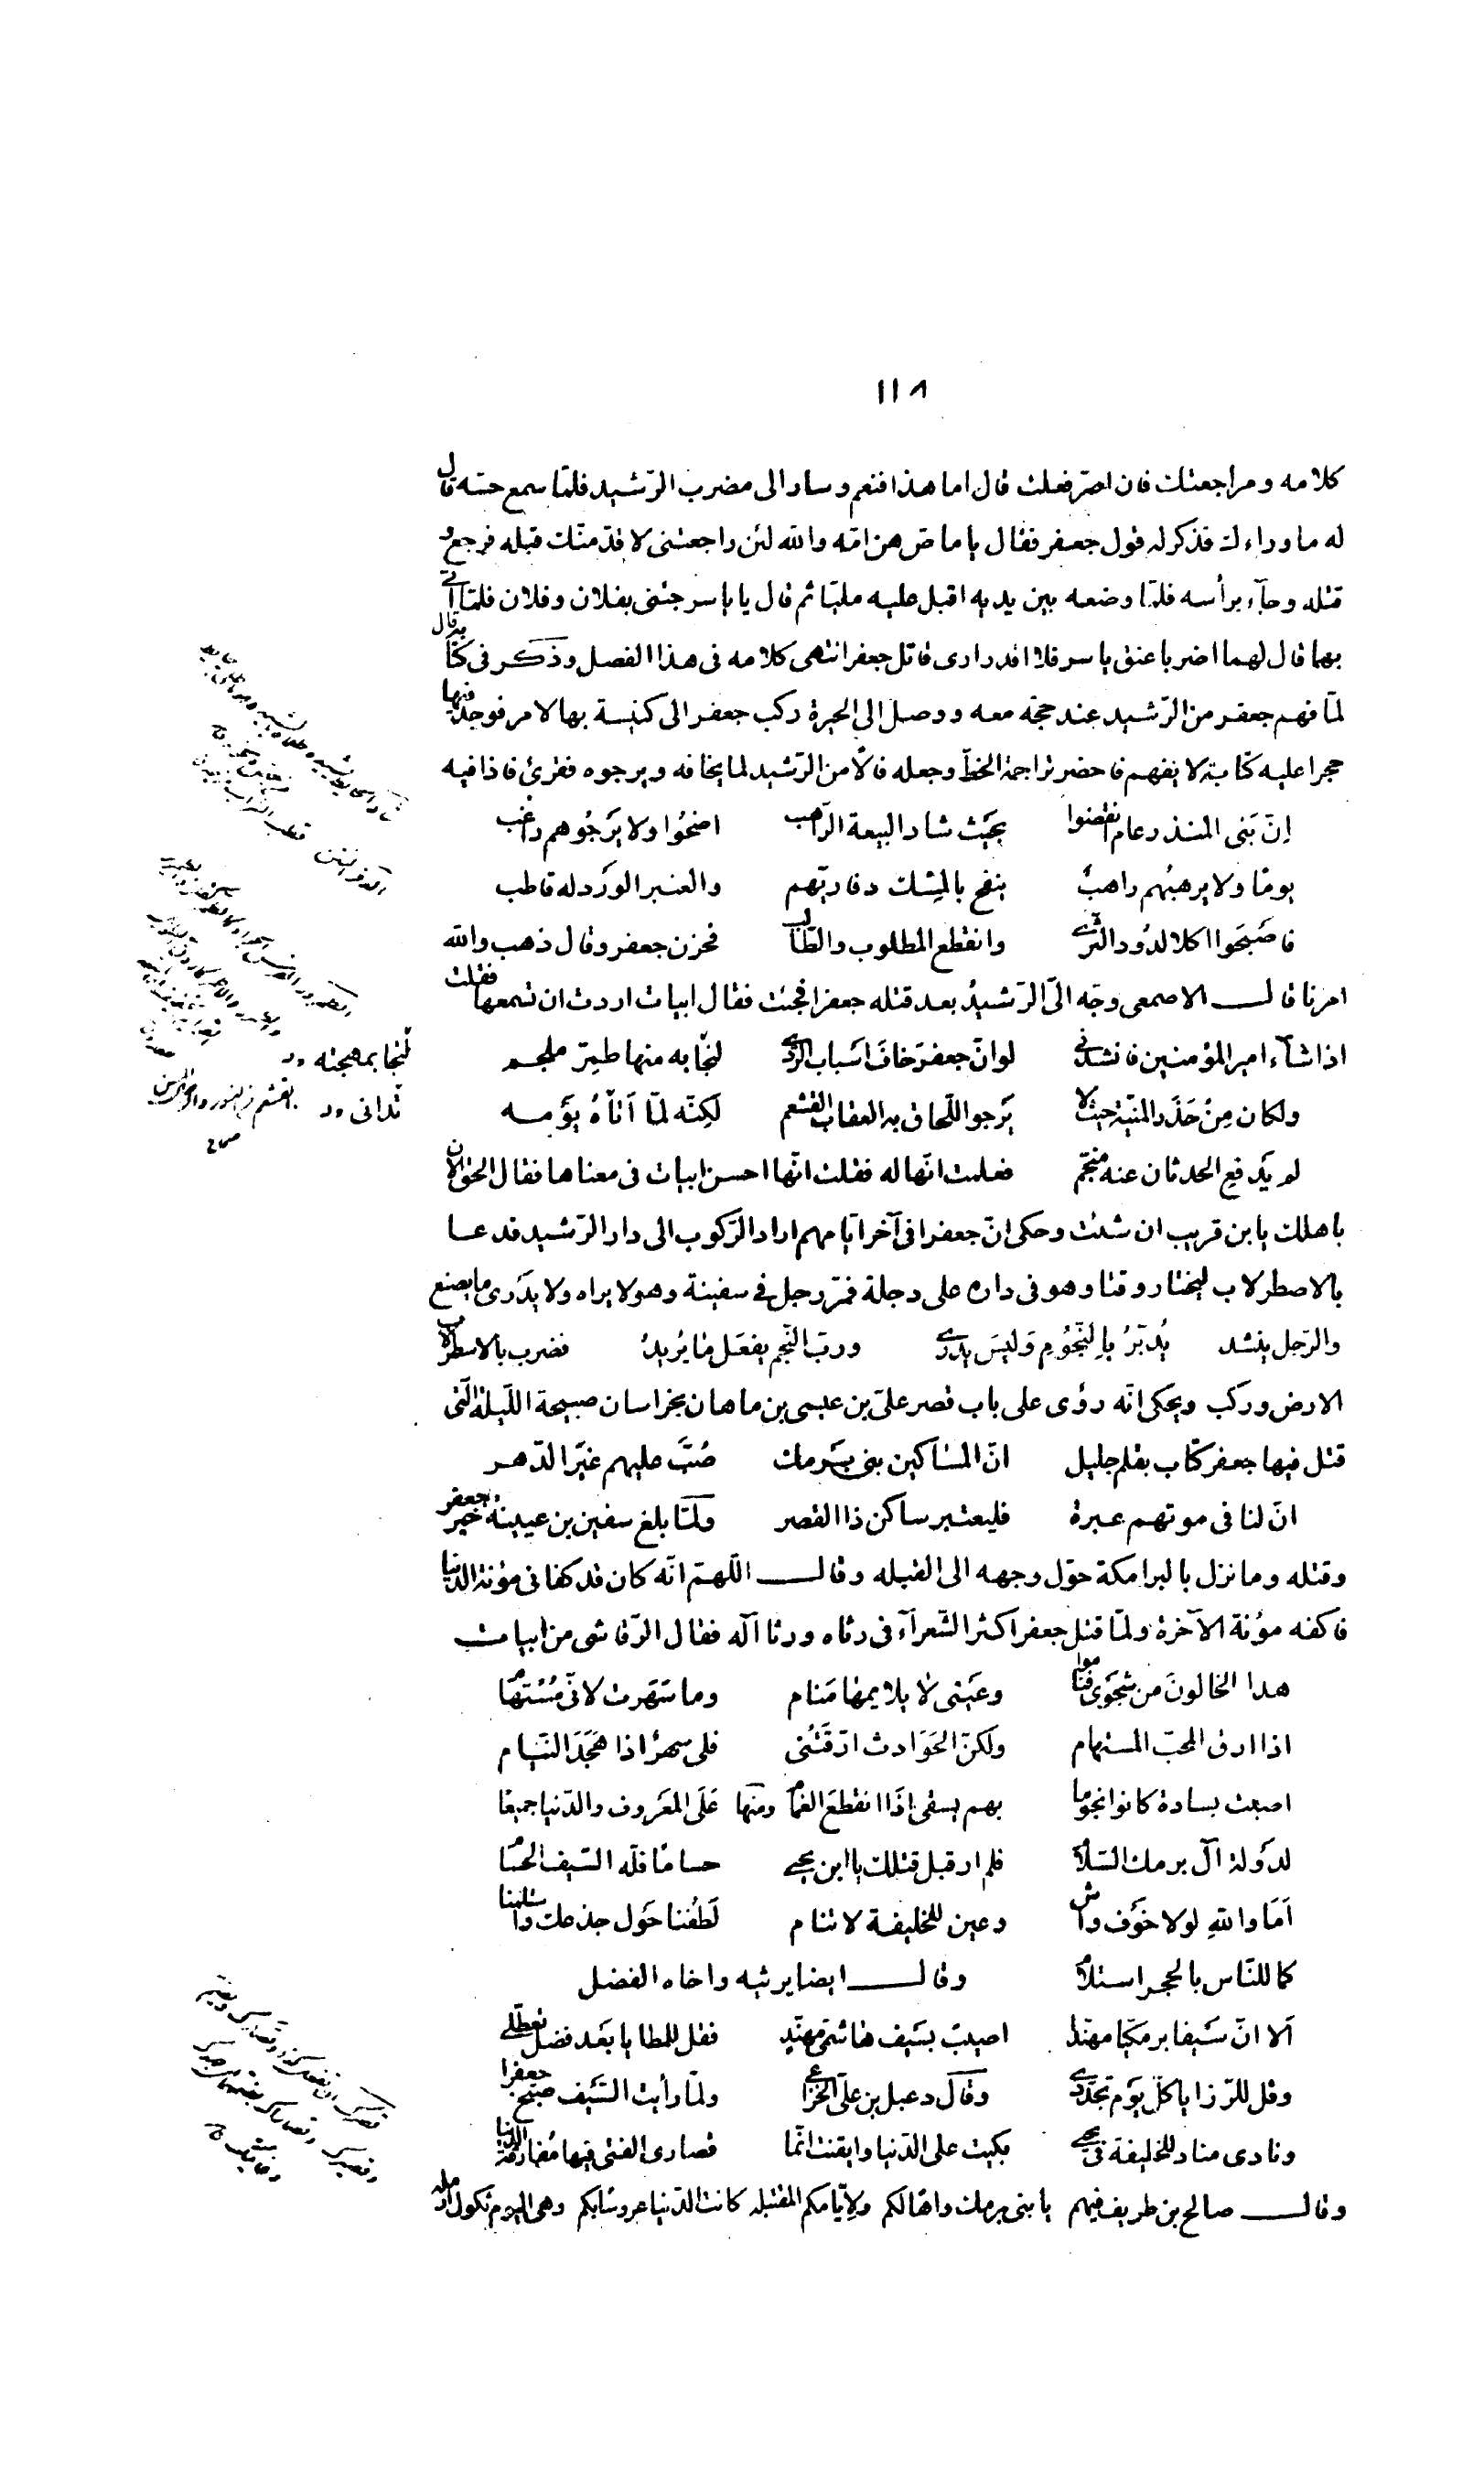 ١١٨
كلامه ومراجعتك فان اصر فعلت قال اما هذا فنعم وسار الى مضرب الرّشيد فلمّا سمع حسّه قال
له ما وراءك فذكر له قول جعفر فقال يا ماصّ هن امّه والله لئن راجعتنى لاقدّمنّك قبله فرجع و
قتله وجآء برأسه فلمّا وضعه بين يديه اقبل عليه مليّا ثم قال يا ياسر جئنى بفلان وفلان فلمّا اتى
بهما قال لهما اضربا عنق ياسر فلا اقدر ارى قاتل جعفر انتهى كلامه فى هذا الفصل وذكر فى كتابه قال
لمّا فهم جعفر من الرّشيد عند حجّه معه ووصل الى الحيرة ركب جعفر الى كنيسة بها لامر فوجد فيها
حجرا عليه كتابة لا يفهم فاحضر تراجمة الخطّ وجعله فالًا من الرّشيد لما يخافه ويرجوه فقرئ فاذا فيه
انّ بَنى المنذر عام انقضوا بحَيث شاد البيعة الرّاهب اضحُوا ولا يَرجُوهم راغب
يومًا ولا يرهبُهم راهبٌ ينفح بالمِسك دفاريّهم والعنبر الورد له قاطب
فاصَبحَوا اكلا لدُود الثّرى وانقطع المطلوب والطّالب فحزن جعفر وقال ذهب والله
امرنا قال الاصمعى وجّه الىّ الرّشيدُ بعد قتله جعفرا فجئت فقال ابيات اردت ان تسمعها فقلت
اذا شآء امير المؤمنين فانشدنى لو انّ جعفرَ خافَ اسَباب الرّدى لنجّا به منها طمِرّ ملجم
ولكان مِنُ حَذَر المنيّة حيث لا يَرجو اللّحاق به العقاب القشعم لكِنّه لمّا اَتاهُ يَومه
لم يَدفعِ الحدثان عنه منجّم فعلمت انّها له فقلت انّها احسن ابيات فى معناها فقال الحق الان
باهلك يا بن قريب ان شئت وحكى انّ جعفرا فى آخر ايّامهم اراد الرّكوب الى دار الرّشيد فدعا
بالاصطرلاب ليختار وقتا وهو فى داره على دجلة فمرّ رجل فى سفينة وهو لا يراه ولا يدَرى ما يصنع
والرّجل ينشد يُدبّرُ باِلنّجُومِ وَليسَ يَدرى وربّ النّجم يفعَل مَا يُريدُ فضرب بالاسطرلاب
الارض وركب ويحكى انّه رؤى على باب قصر علىّ بن عيسى بن ماهان بخراسان صبيحة اللّيلة الّتى
قتل فيها جعفر كتّاب بقلم جليل انّ المسَاكين بنى بَرمك صُبَّ عليهم غيَرَ الدّهر
انّ لنا فى موتهم عبرة فليعتبر ساكن ذا القصر ولمّا بلغ سفين بن عيينة خبر جعفر
وقتله وما نزل بالبرامكة حوّل وجهه الى القبله وقال اللّهمّ انّه كان قد كفانى مؤنة الدّنيا
فاكفه مؤنة الآخرة ولمّا قتل جعفرا كثر الشّعرآء فى رثاه ورثا آله فقال الرّقاشى من ابيات
هدا الخالونَ من شجَوى فنَاموا وعَينى لا يلايمهَا مَنام وما سَهَرت لانّى مُسْتهام
اذا ارق المحبّ المستهام ولكنّ الحَوَادث ارّقَتْنى فلى سهرٌ اذا هَجَدَ النّيام
اصبت بسادة كانوا نجوما بهم يسقى اِذَا انقطعَ الغمام ومنها عَلَى المعَروف والدّنيا جميعًا
لدَولة آل برمك السّلام فلم ار قبل قتلك يا ابن يحيى حسامًا فلّه السّيف الحسام
اَمَا واللّهِ لولا خوَف واش وعين للخليفة لا تنام لَطُفنا حَول جذعك واستلمنا
كما للنّاس بالحجر استلام وقال ايضا يرثيه واخاه الفضل
اَلا انّ سَيفا برمكيّا مهنّدا اصيبَ بسَيف هَاشمّى مهنّدٍ فقل للمطايا بعَد فضل تعطّلى
وقل للرّزايا كلّ يوَم تجدّدى وقال دعبل بن علىّ الخزاعى ولمّا رأيت السّيَف صبّح جعفرا
ونادى مناد للخليفة فى يحيى بكيت على الدّنيا وايقنت انّما قصارى الفتى فيها مُفارقة الدّنيا
وقال صالح بن طريف فيهم يا بنى برمك واهًا لكم ولاِيّامكم المقتبله كانت الدّنيا عروسًا بكم وهى اليوم ثكول ارمله
لنجا بمهجته
تدانى